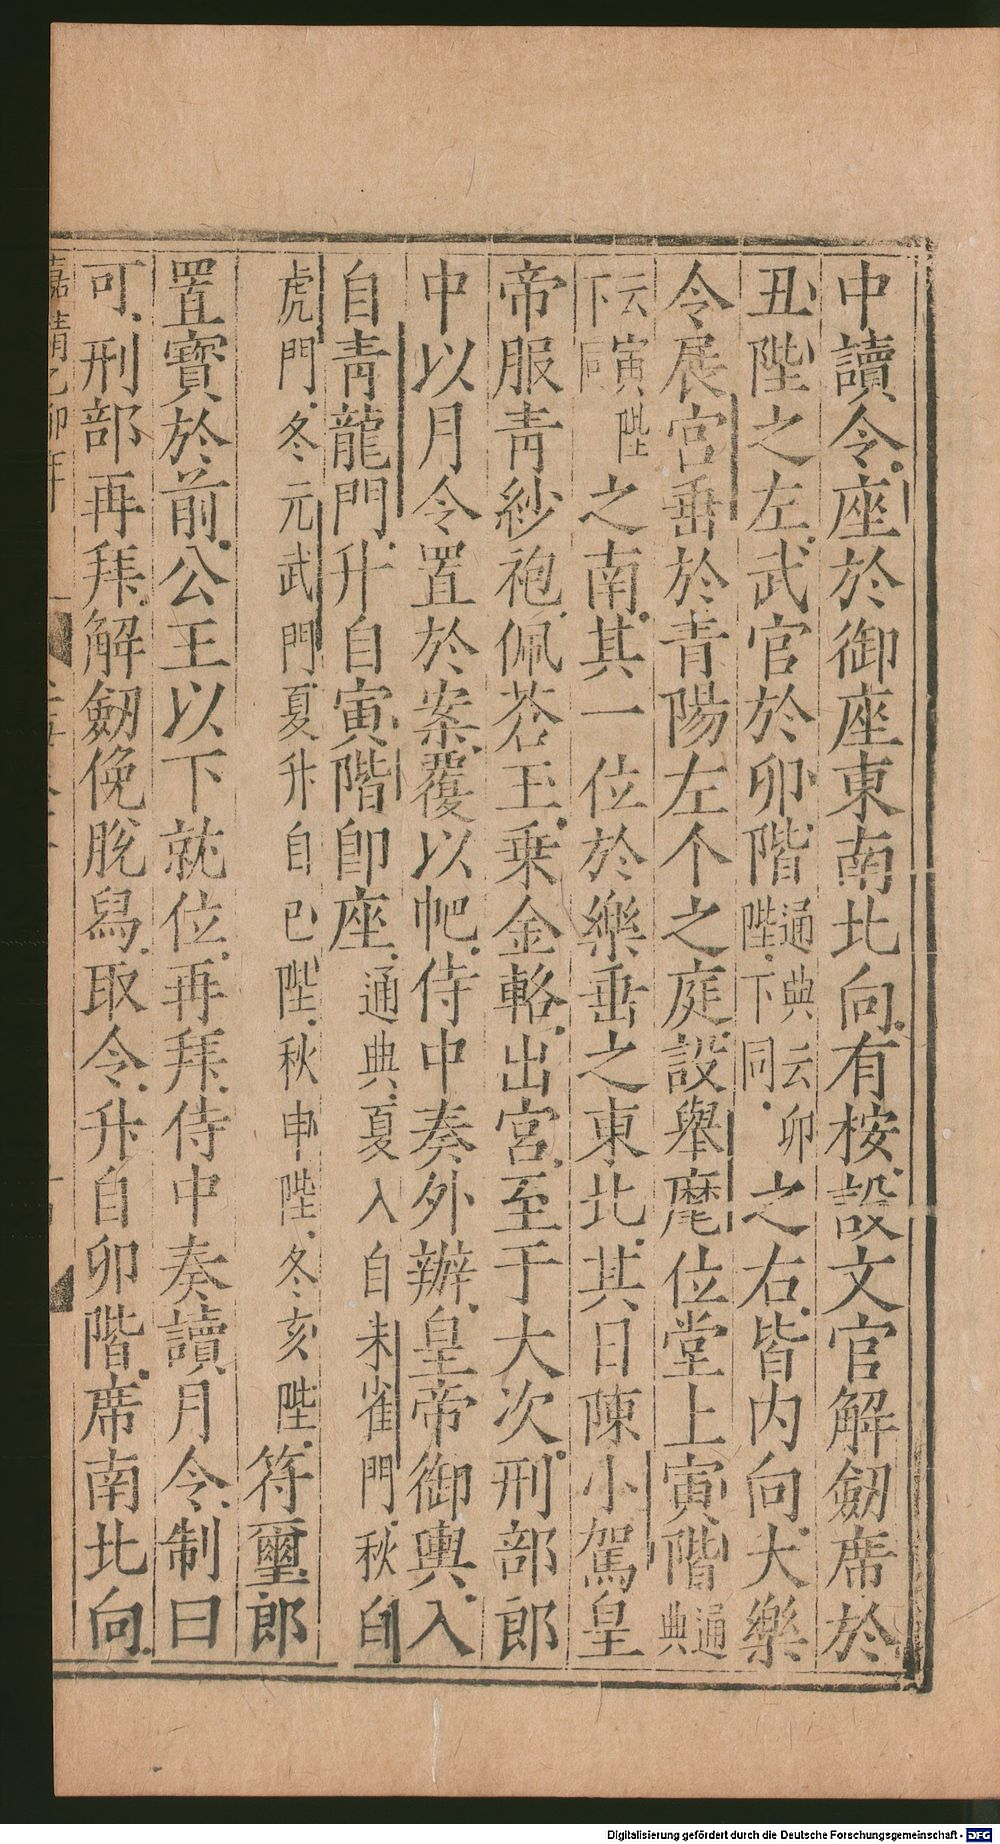 中讀令座於御座東南北向有桉設文官解劒席於
丑陛之左武官於卯階通典云卯陛下同之右皆内向大樂
令展宮垂於青陽左个之庭設舉麾位堂上寅階通典
云寅陛下同之南其一位於樂垂之東北其日陳小駕皇
帝服青紗袍佩蒼玉乗金輅出宮至于大次刑部郎
中以月令置於案覆以帊侍中奏外辦皇帝御輿入
自青龍門升自寅階卽座通典夏入自朱雀門秋自
虎門冬元武門夏升自巳陛秋申陛冬亥陛符璽郎
置寶於前公王以下就位再拜侍中奏讀月令制曰
可刑部再拜解劒俛脫舄取令升自卯階席南北向
嘉靖乙卯年
Digitalisierung gefördert durch die Deutsche Forschungsgemeinschaft - DFG